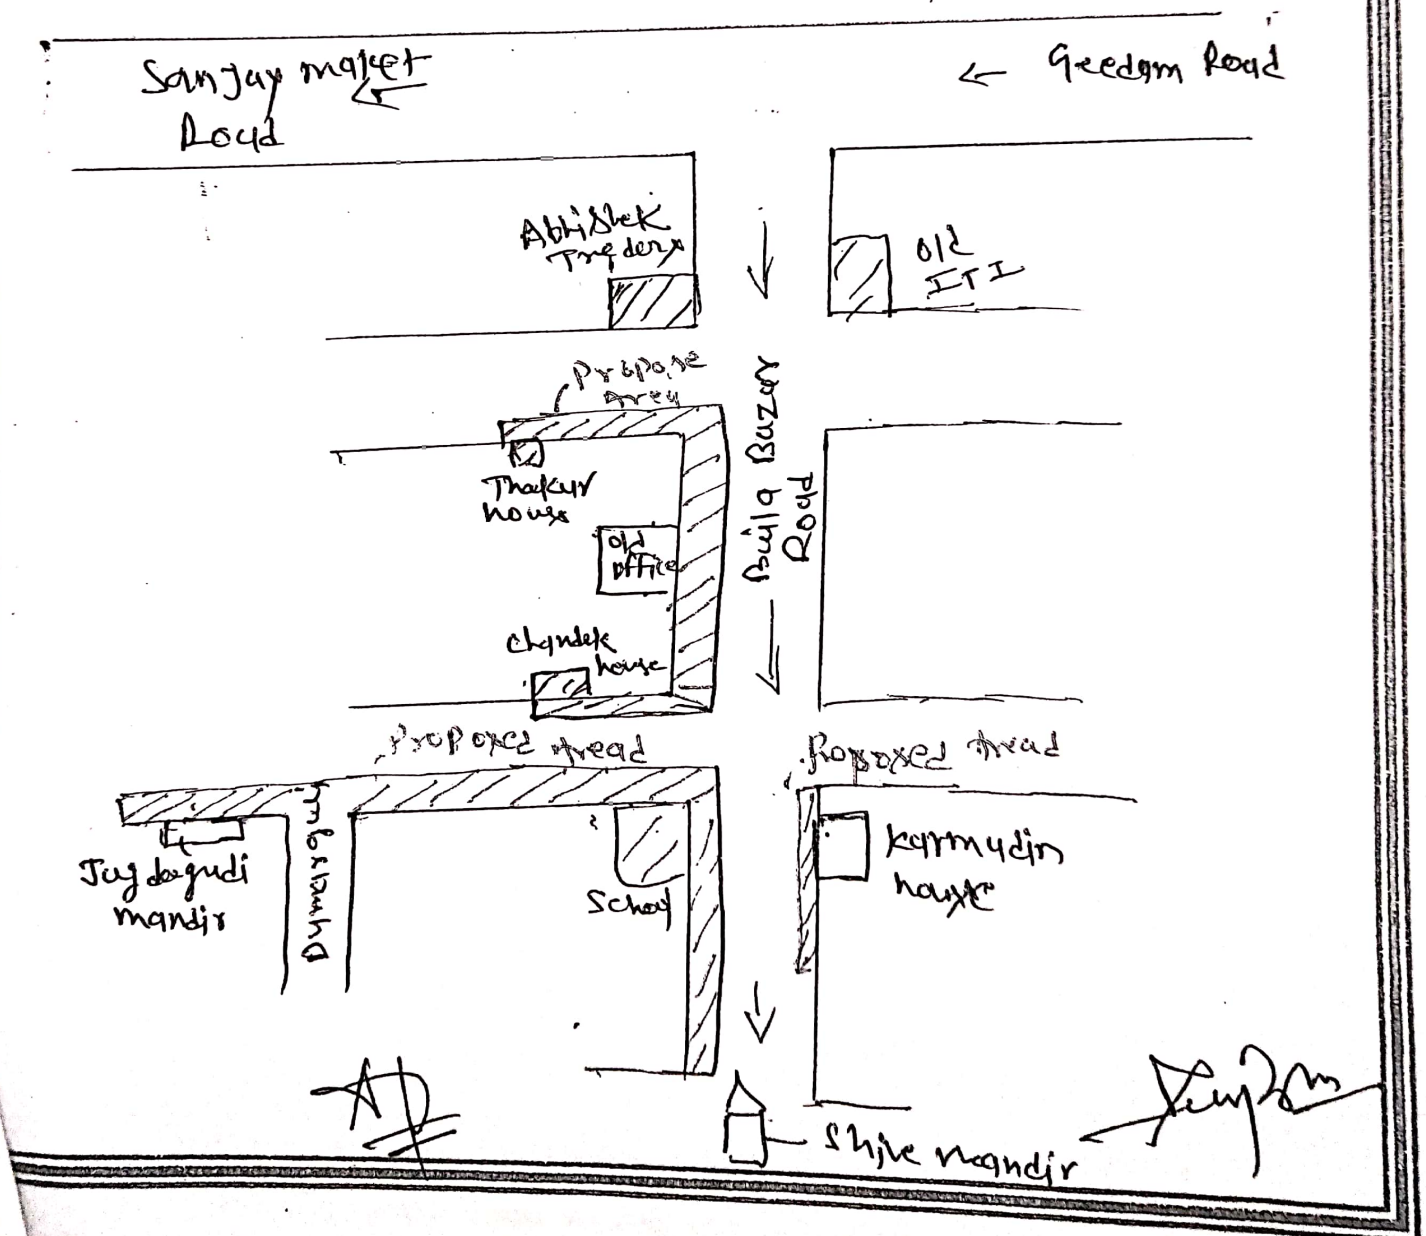 Sanjay market
Road
← Geedam Road
Abhishek
Traders
old
ITI
Propose
Area
Thakur
house
old
office
Chandek
house
Road
Proposed Aread
Proposed Aread
Jugdagudi
mandir
School
Karmudin
house
Shive mandir